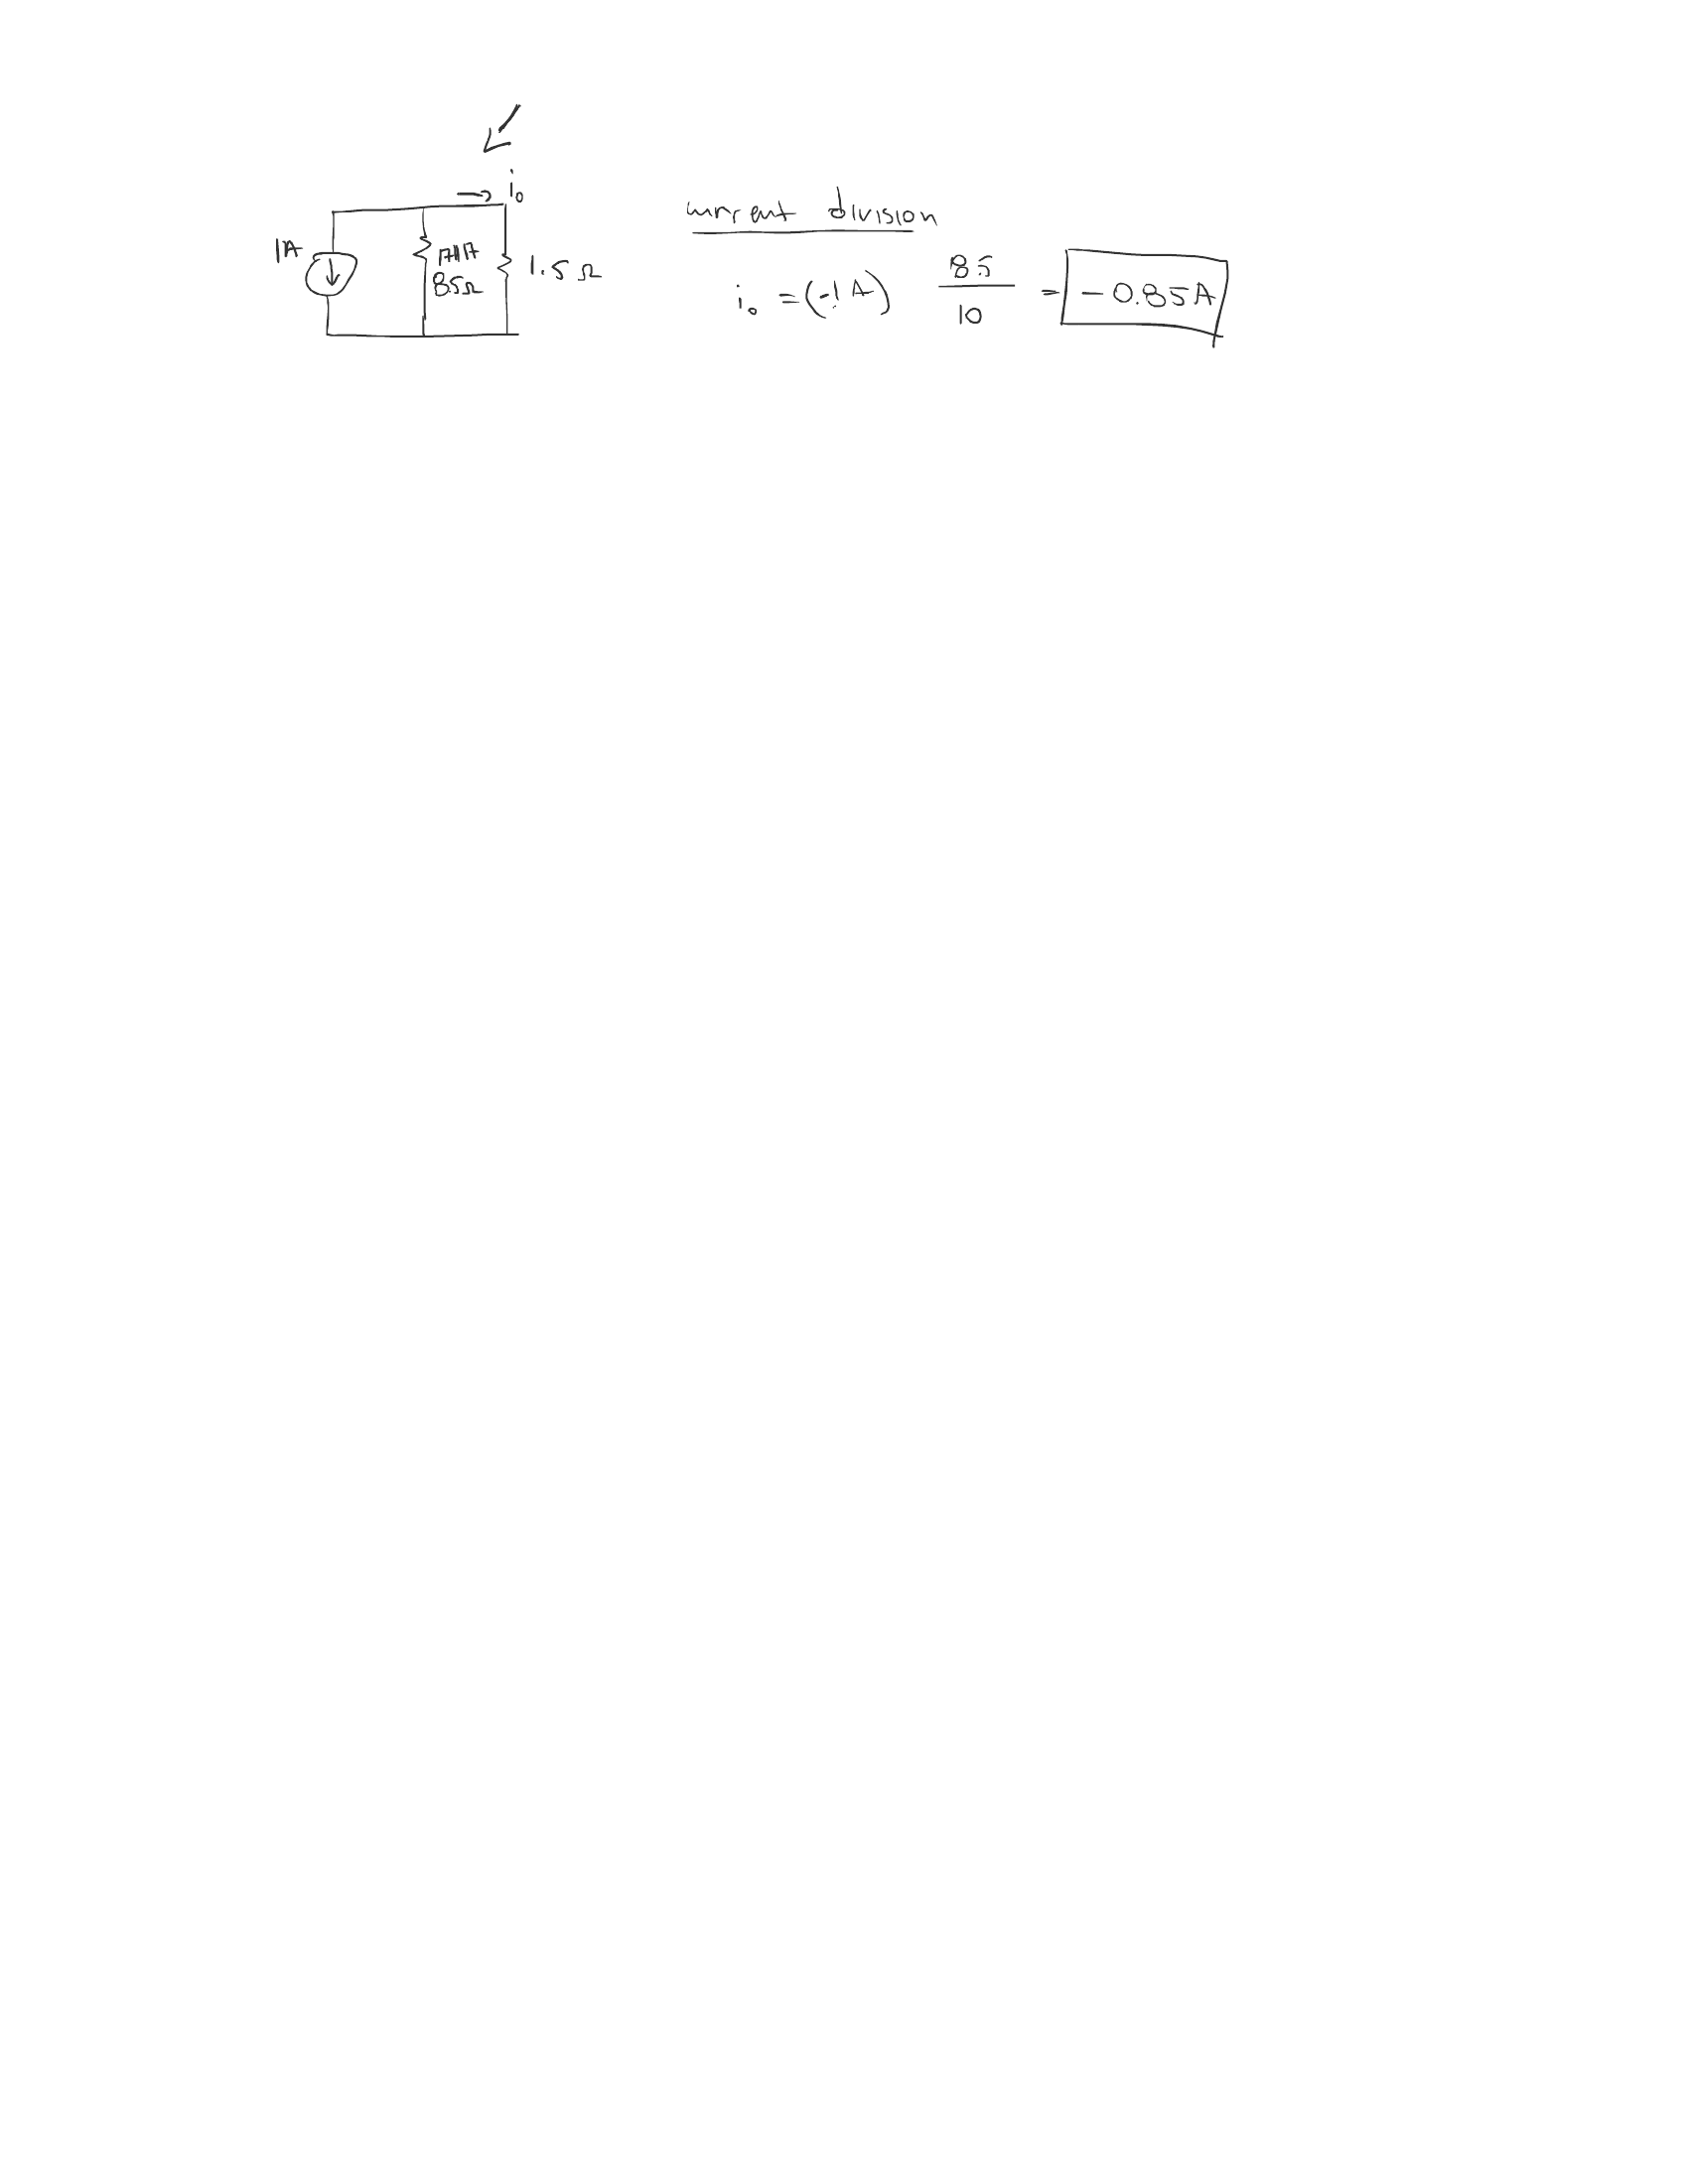 i₀
1A
8.5Ω
1.5 Ω
current division
i₀ = (-1 A) 8.5 / 10 = -0.85A